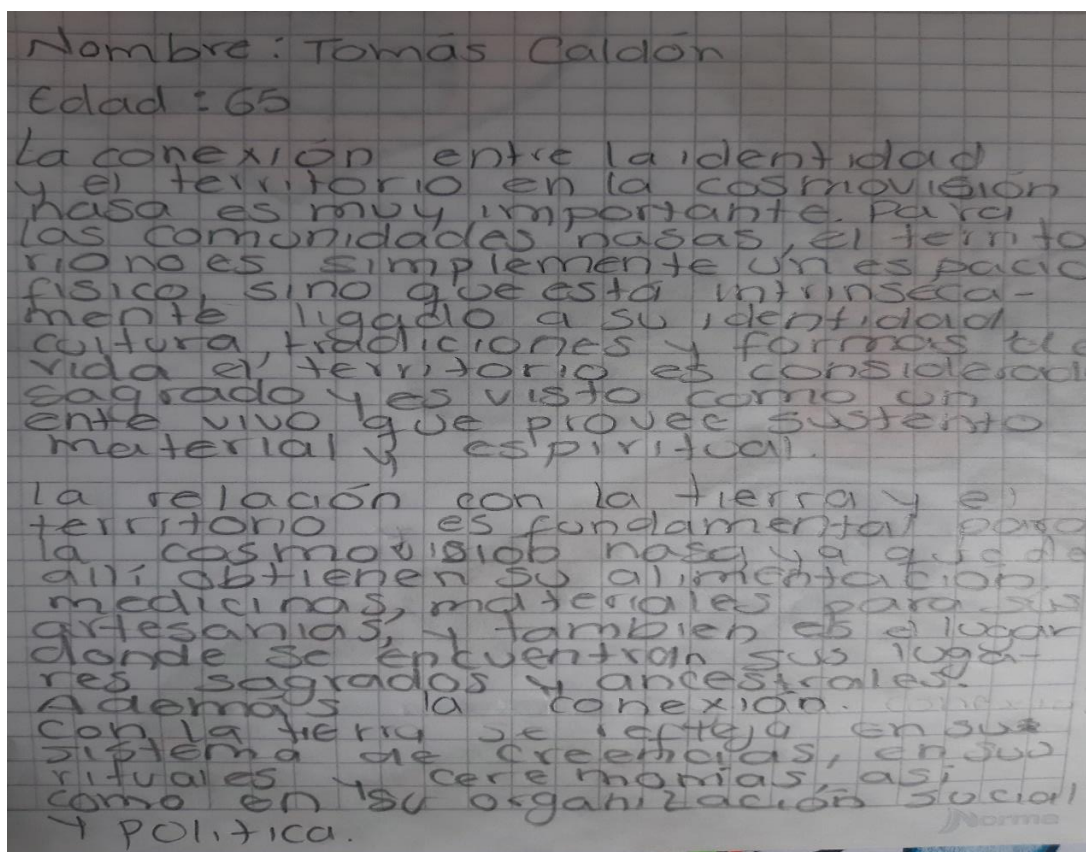 Nombre: Tomás Caldón
Edad: 65
La conexión entre la identidad
y el territorio en la cosmovisión
nasa es muy importante. Para
las comunidades nasas, el territo
rio no es simplemente un espacio
físico, sino que está intrínseca-
mente ligado a su identidad,
cultura, tradiciones y formas de
vida el territorio es considerado
sagrado y es visto como un
ente vivo que provee sustento
material y espiritual.
la relación con la tierra y el
territorio es fundamental para
la cosmovisiob nasa ya que de
allí obtienen su alimentación
medicinas, materiales para sus
artesanías, y tambien es el lugar
donde se encuentran sus luga-
res sagrados y ancestrales.
Además la conexión.
con la tierra se refleja en su
sistema de creencias, en sus
rituales y ceremonias, así
como en su organización social
y política.
Norma